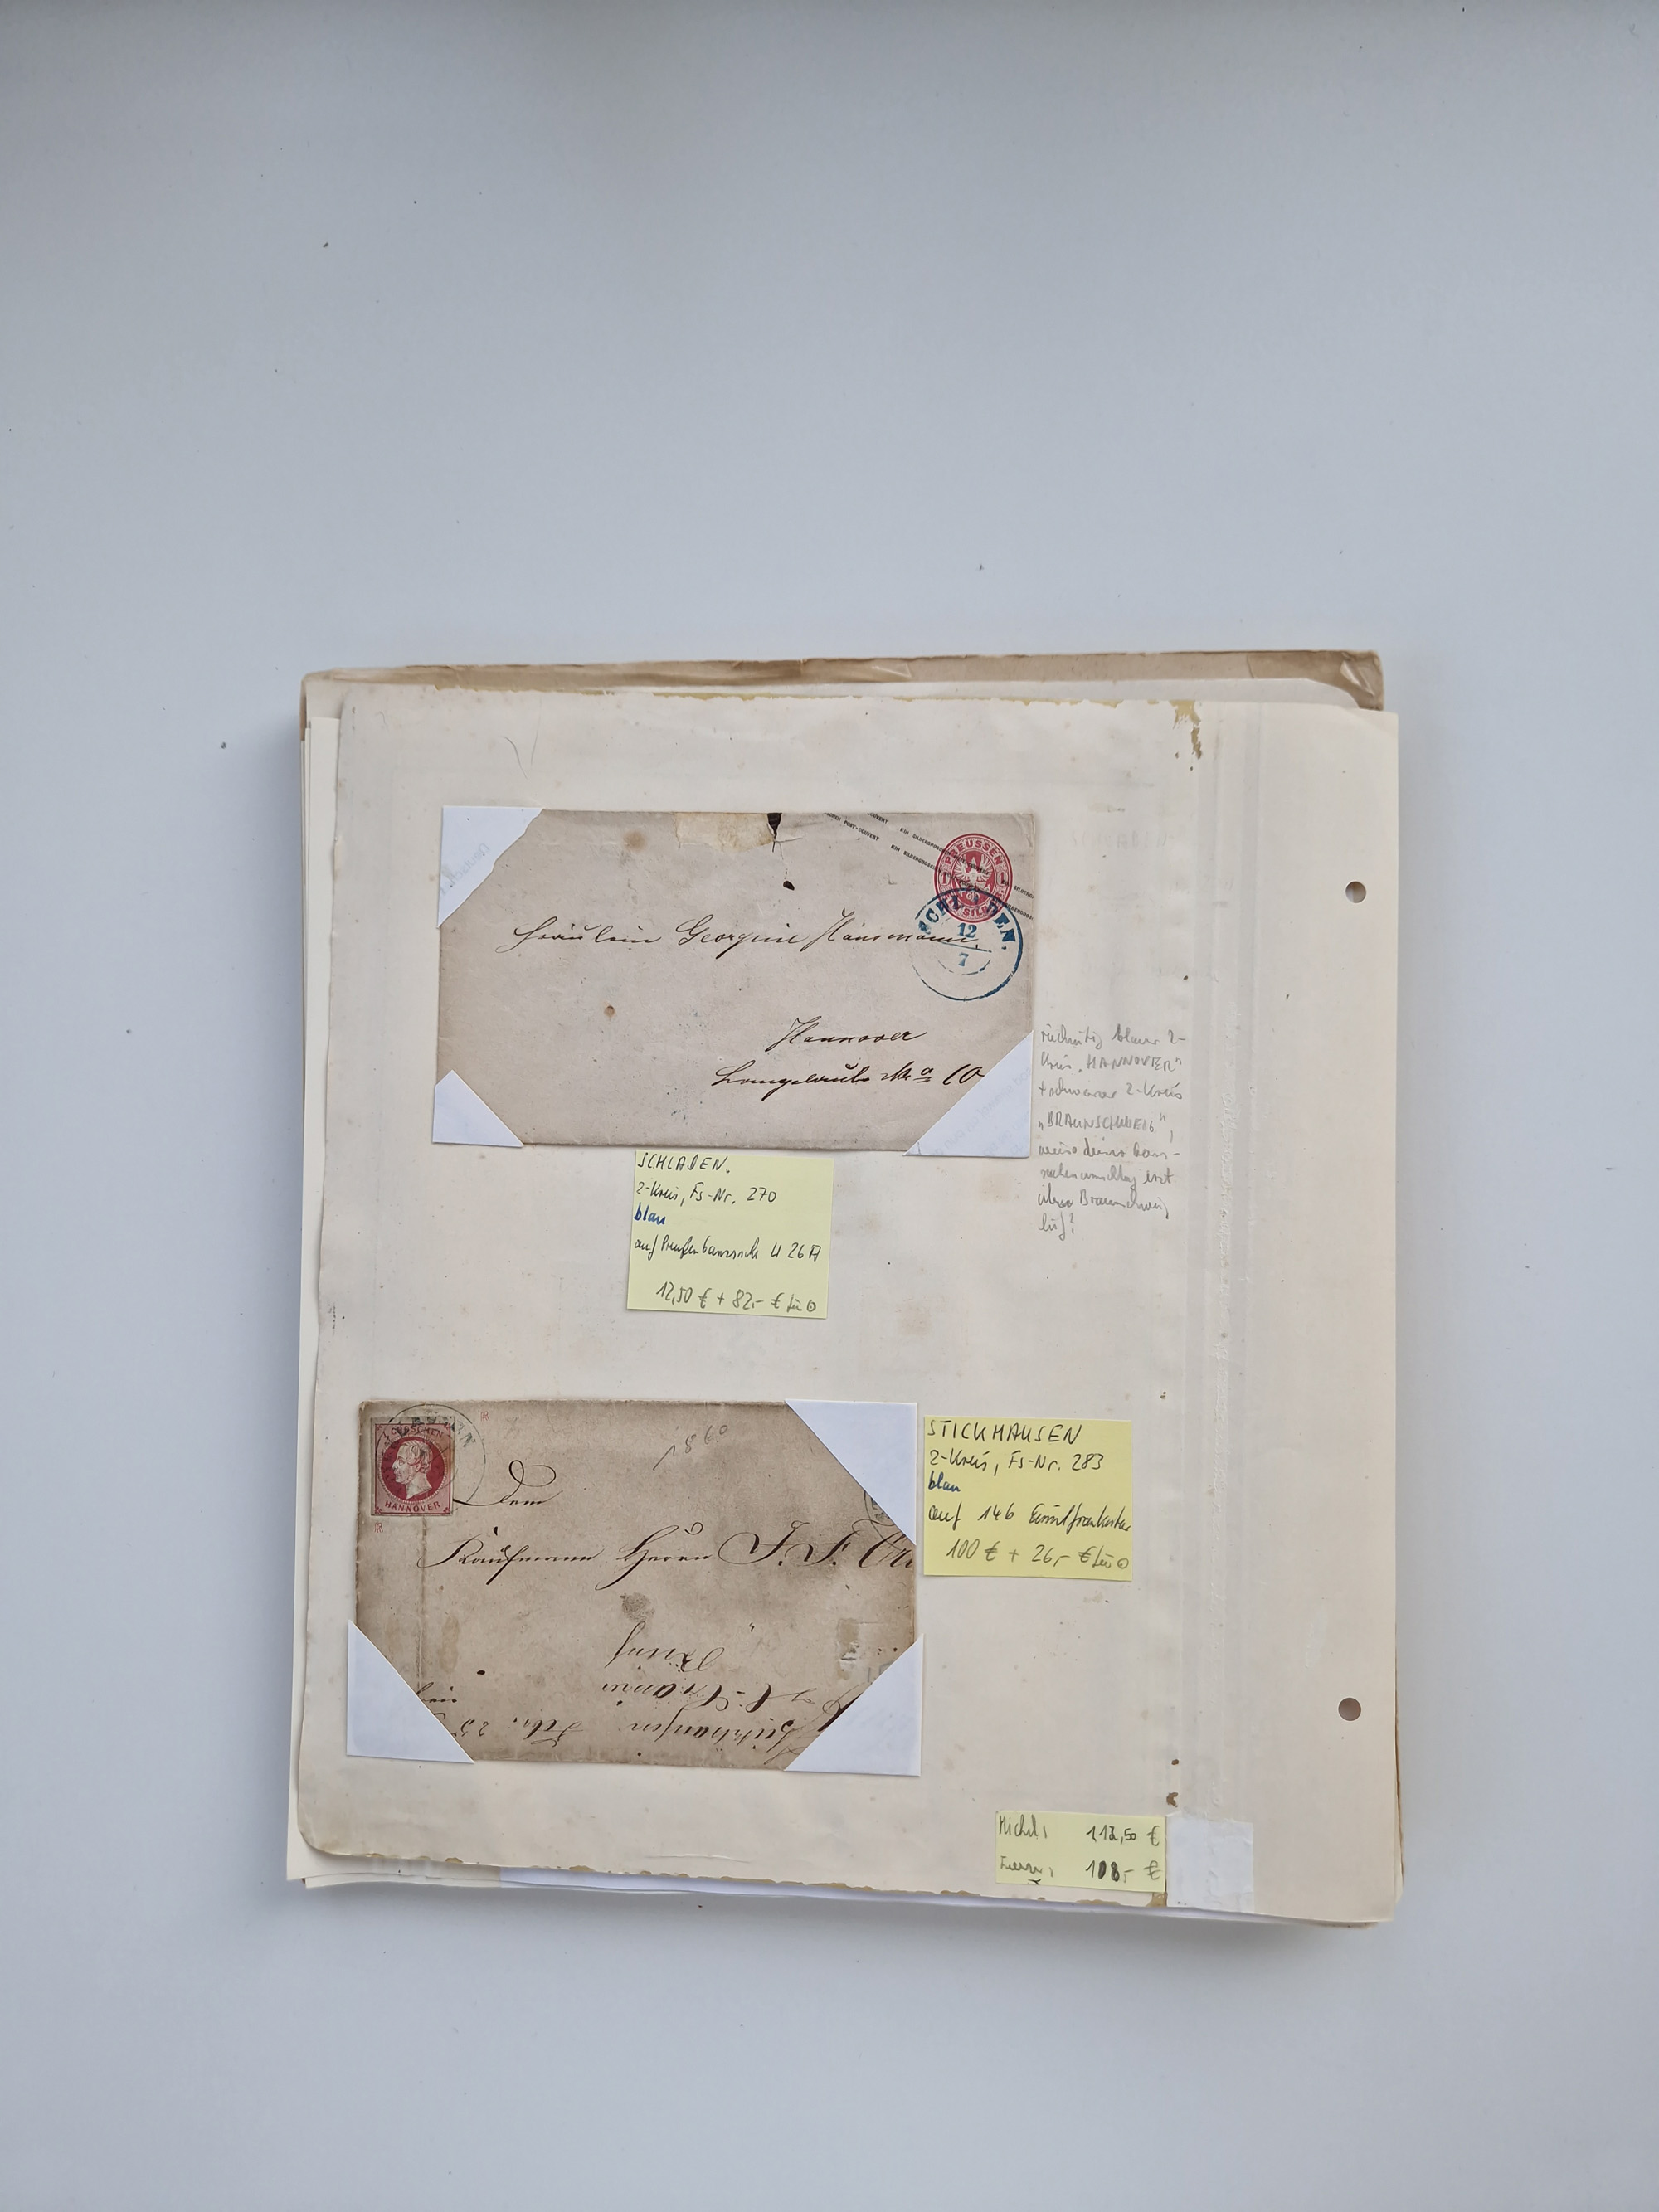 PREUSSEN
SILB
POST-COUVERT
EIN
SCHLADEN.
12
7
Fräulein Georgine Hausmann.
Hannover
Langelaube No 10
rückseitig blauer 2-
Kreis „HANNOVER“
+ schwarzer 2-Kreis
„BRAUNSCHWEIG“,
über Braunschweig
lief?
SCHLADEN.
2-Kreis, Fs-Nr. 270
blau
auf U 26 A
12,50 € + 82,- € für ⊙
GROSCHEN
HANNOVER
1860
Dem
Kaufmann Herrn J. F.
Stickhausen Febr. 25
STICKHAUSEN
2-Kreis, Fs-Nr. 283
blau
auf 14b Einzelfrankatur
100 € + 26,- € für ⊙
Michel: 112,50 €
108,- €